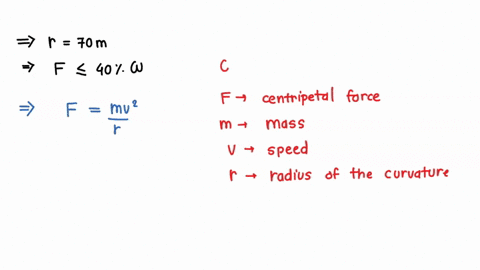 ⇒ r = 70m
⇒ F ≤ 40%. ω
⇒ F = mv²/r
C
F → centripetal force
m → mass
v → speed
r → radius of the curvature